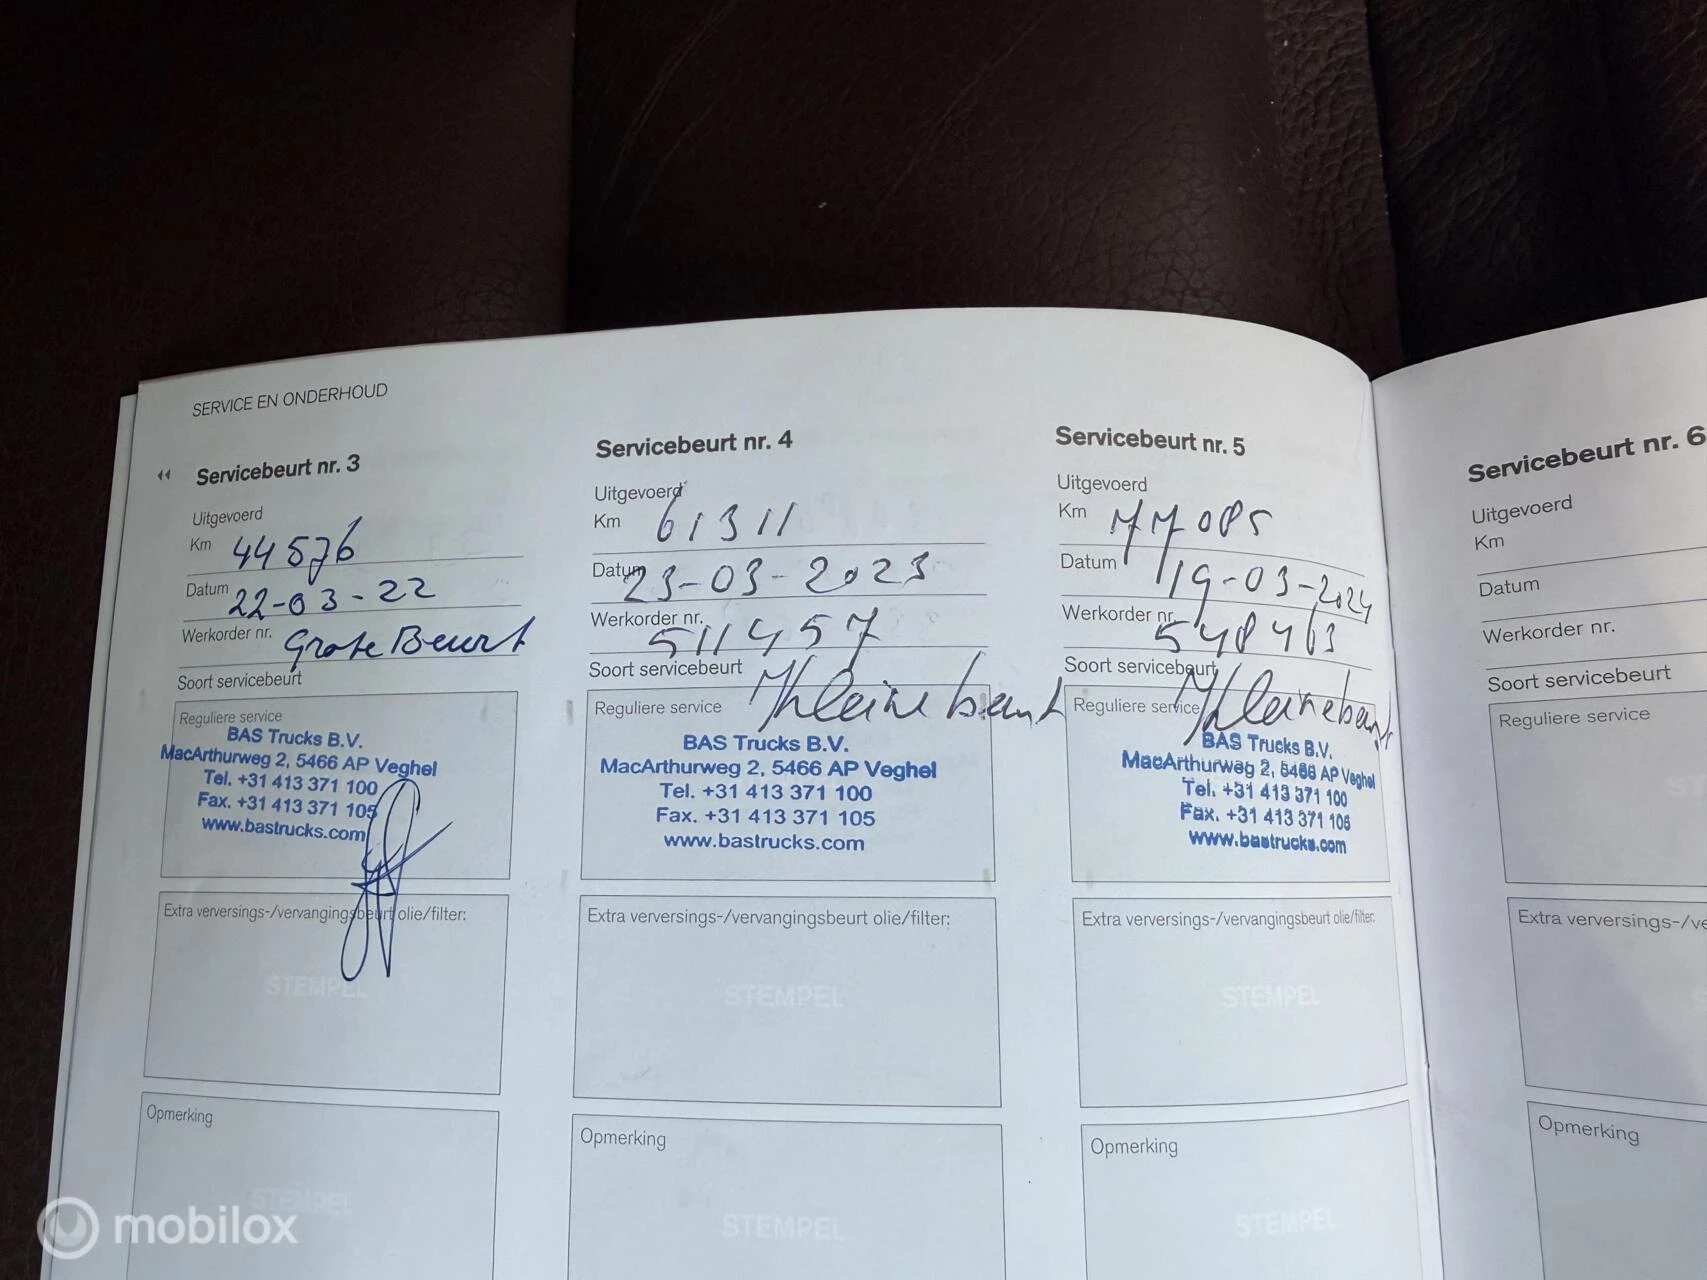 SERVICE EN ONDERHOUD
Servicebeurt nr. 3
Uitgevoerd
Km 44576
Datum 22-03-22
Werkorder nr. Grote Beurt
Soort servicebeurt
Reguliere service
BAS Trucks B.V.
MacArthurweg 2, 5466 AP Veghel
Tel. +31 413 371 100
Fax. +31 413 371 105
www.bastrucks.com
Extra verversings-/vervangingsbeurt olie/filter:
STEMPEL
Opmerking
STEMPEL
Servicebeurt nr. 4
Uitgevoerd
Km 61311
Datum 23-03-2023
Werkorder nr. 511457
Soort servicebeurt
Kleine beurt
Reguliere service
BAS Trucks B.V.
MacArthurweg 2, 5466 AP Veghel
Tel. +31 413 371 100
Fax. +31 413 371 105
www.bastrucks.com
Extra verversings-/vervangingsbeurt olie/filter:
STEMPEL
Opmerking
STEMPEL
Servicebeurt nr. 5
Uitgevoerd
Km 77085
Datum 19-03-2024
Werkorder nr. 548463
Soort servicebeurt
Kleine beurt
Reguliere service
BAS Trucks B.V.
MacArthurweg 2, 5466 AP Veghel
Tel. +31 413 371 100
Fax. +31 413 371 105
www.bastrucks.com
Extra verversings-/vervangingsbeurt olie/filter:
STEMPEL
Opmerking
STEMPEL
Servicebeurt nr. 6
Uitgevoerd
Km
Datum
Werkorder nr.
Soort servicebeurt
Reguliere service
Extra verversings-/ve
Opmerking
mobilox